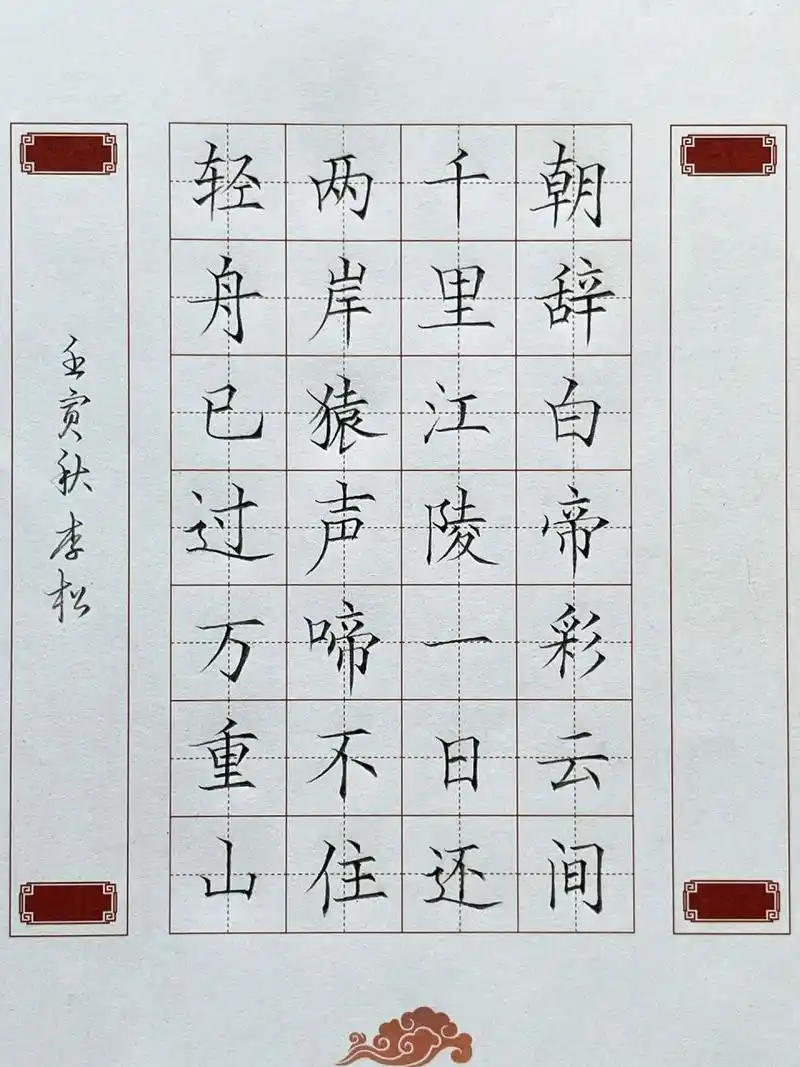 朝辞白帝彩云间
千里江陵一日还
两岸猿声啼不住
轻舟已过万重山
壬寅秋李松